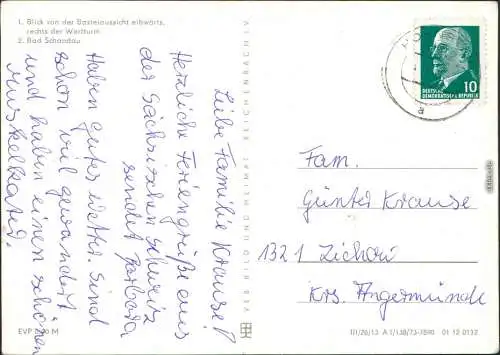 1. Blick von der Basteiaussicht elbwärts,
rechts der Wartturm
2. Bad Schandau
Liebe Familie Krause!
Herzliche Feriengrüße aus
der Sächsischen Schweiz
sendet Barbara
Haben gutes Wetter. Sind
schon viel gewandert
und haben einen schönen
Muskelkater.
EVP 0,20 M
VEB BILD UND HEIMAT REICHENBACH I. V.
DEUTSCHE
DEMOKRATISCHE REPUBLIK
10
a
Fam.
Günter Krause
1321 Zichow
Krs. Angermünde
III/26/13 A 1/138/73-7890 01 12 0132